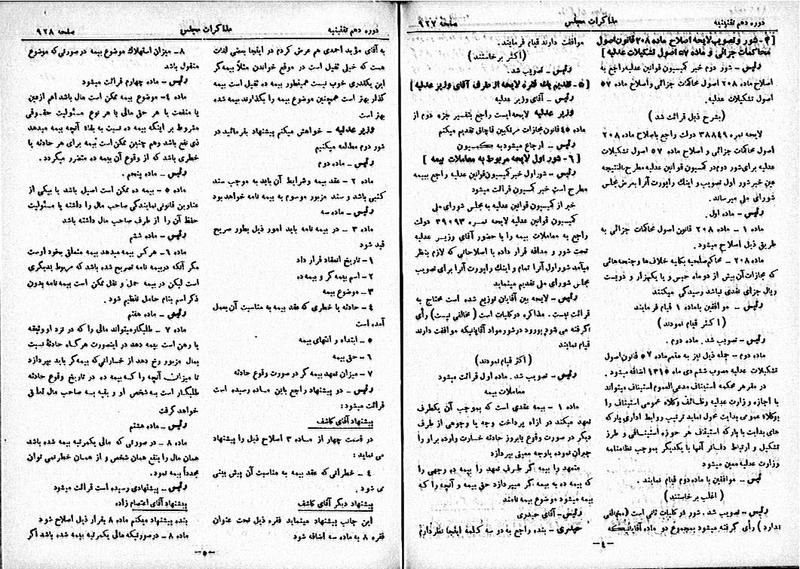 دوره دهم تقنینیه
مذاکرات مجلس
صفحه ۹۲۷
[۴- شور و تصویب لایحه اصلاح ماده ۲۰۸ قانون اصول
محاکمات جزائی و ماده ۵۷ اصول تشکیلات عدلیه]
رئیس – شور دوم خبر کمیسیون قوانین عدلیه راجع به
اصلاح ماده ۲۰۸ اصول محاکمات جزائی و اصلاح ماده ۵۷
اصول تشکیلات عدلیه.
(بشرح ذیل قرائت شد)
لایحه نمره ۳۸۸۴۹ دولت راجع باصلاح ماده ۲۰۸
اصول محاکمات جزائی و اصلاح ماده ۵۷ اصول تشکیلات
عدلیه برای شور دوم در کمیسیون قوانین عدلیه مطرح بالنتیجه
عین خبر شور اول تصویب و اینك راپورت آنرا بعرض مجلس
شورای ملی میرساند.
رئیس – ماده اول.
ماده ۱ – ماده ۲۰۸ قانون اصول محاکمات جزائی به
طریق ذیل اصلاح میشود.
ماده ۲۰۸ – محاکم صلحیه بکلیه خلاف‌ها و جنحه‌هائی
که مجازات آن بیش از دوماه حبس و یا یکهزار و دویست
ریال جزای نقدی نباشد رسیدگی میکنند
رئیس – موافقین با ماده ۱ قیام فرمایند
(اکثر قیام نمودند)
رئیس – تصویب شد. ماده دوم.
ماده دوم – جمله ذیل نیز به متمم ماده ۵۷ قانون اصول
تشکیلات عدلیه مصوب ششم دی ماه ۱۳۱۵ اضافه میشود.
در مقر هر محکمه استیناف مدعی العموم استیناف میتواند
با اجازه وزارت عدلیه وظائف وکلاء عمومی استیناف را
بوکلاء عمومی بدایت محول نماید ترتیب روابط اداری پارکه
های بدایت با پارکه استیناف هر حوزه استینافی و طرز
تشکیل و ارتباط دفاتر آنها با یکدیگر بموجب نظامنامه
وزارت عدلیه معین میشود
رئیس – موافقین با ماده دوم قیام نمایند.
(اغلب برخاستند)
رئیس – تصویب شد. شور در کلیات ثانی است (مخالفی
ندارد) رأی گرفته میشود بمجموع دو ماده آقایانیکه
موافقت دارند قیام فرمایند.
(اکثر برخاستند)
رئیس – تصویب شد.
[۵- تقدیم یك فقره لایحه از طرف آقای وزیر عدلیه]
رئیس – آقای وزیر عدلیه
وزیر عدلیه – لایحه‌ایست راجع بتفسیر جزء دوم از
ماده ۴۵ قانون مجازات مرتکبین قاچاق تقدیم میکنم
رئیس – ارجاع میشود به کمیسیون
[۶- شور اول لایحه مربوط به معاملات بیمه]
رئیس – شور اول خبر کمیسیون قوانین عدلیه راجع ببیمه
مطرح است خبر کمیسیون قرائت میشود
خبر از کمیسیون قوانین عدلیه به مجلس شورای ملی
کمیسیون قوانین عدلیه لایحه نمره ۳۹۰۹۳ دولت
راجع به معاملات بیمه را با حضور آقای وزیر عدلیه
تحت شور و مداقه قرار داده با اصلاحاتی که لازم بنظر
میآمد شور اول آنرا تمام و اینك راپورت آنرا برای تصویب
مجلس شورای ملی تقدیم مینماید
رئیس – لایحه بین آقایان توزیع شده است محتاج به
قرائت نیست. مذاکره در کلیات است (مخالفی نیست) رأی
گرفته می شود بورود در شور مواد آقایانیکه موافقت دارند
قیام نمایند
(اکثر قیام نمودند)
رئیس – تصویب شد. ماده اول قرائت میشود
معاملات بیمه
ماده ۱ – بیمه عقدی است که بموجب آن یکطرف
تعهد میکند در ازاء پرداخت وجه یا وجوهی از طرف
دیگر در صورت وقوع یا بروز حادثه خسارت وارده بر او را
جبران نموده یا وجه معینی بپردازد
متعهد را بیمه گر طرف تعهد را بیمه ده وجهی را
که بیمه ده به بیمه گر میپردازد حق بیمه و آنچه را که
بیمه میشود موضوع بیمه نامند
رئیس – آقای حیدری
حیدری – بنده راجع به در سه کلمهٔ اینجا نظر دارم
– ٤ –
دوره دهم تقنینیه
مذاکرات مجلس
صفحه ۹۲۸
به آقای مؤید احمدی هم عرض کردم در اینجا بعضی لغات
هست که خیلی ثقیل است در موقع خواندن مثلاً بیمه گر
این یکقدری خوب نیست همینطور بیمه ده ثقیل است بیمه
گذار بهتر است همچنین موضوع بیمه را بگذاریم بیمه شده
بهتر است
وزیر عدلیه – خواهش میکنم پیشنهاد بفرمائید در
شور دوم مطالعه میکنیم
رئیس – ماده دوم
ماده ۲ – عقد بیمه و شرایط آن باید به موجب سند
کتبی باشد و سند مزبور موسوم به بیمه نامه خواهد بود
رئیس – ماده سه
ماده ۳ – در بیمه نامه باید امور ذیل بطور صریح
قید شود
۱ – تاریخ انعقاد قرار داد
۲ – اسم بیمه گر و بیمه ده
۳ – موضوع بیمه
٤ – حادثه یا خطری که عقد بیمه به مناسبت آن بعمل
آمده است
۵ – ابتداء و انتهای بیمه
۶ – حق بیمه
۷ – میزان تعهد بیمه گر در صورت وقوع حادثه
رئیس – دو پیشنهاد راجع باین ماده رسیده است
قرائت میشود:
پیشنهاد آقای کاشف
در قسمت چهار از ماده ۳ اصلاح ذیل را پیشنهاد
می نماید:
٤ – خطراتی که عقد بیمه به مناسبت آن پیش بینی
می شود.
پیشنهاد دیگر آقای کاشف
این جانب پیشنهاد مینماید فقره ذیل تحت عنوان
فقره ۸ به ماده سه اضافه شود
۸ – میزان استهلاك موضوع بیمه در صورتی که موضوع
منقول باشد
رئیس – ماده چهارم قرائت میشود
ماده ٤ – موضوع بیمه ممکن است مال باشد اعم از عین
یا منفعت یا هر حق مالی یا هر نوع مسئولیت حقوقی
مشروط بر اینکه بیمه ده نسبت به بقاء آنچه بیمه میدهد
ذی نفع باشد و هم چنین ممکن است بیمه برای هر حادثه یا
خطری باشد که از وقوع آن بیمه ده متضرر میگردد.
رئیس – ماده پنجم.
ماده ۵ – بیمه ده ممکن است اصیل باشد یا بیکی از
عناوین قانونی نمایندگی صاحب مال را داشته یا مسئولیت
حفظ آن را از طرف صاحب مال داشته باشد
رئیس – ماده ششم
ماده ۶ – هر کس بیمه میدهد بیمه متعلق بخود اوست
مگر آنکه در بیمه نامه تصریح شده باشد که مربوط بدیگری
است لیکن در بیمه حمل و نقل ممکن است بیمه نامه بدون
ذکر اسم بنام حامل تنظیم شود.
رئیس – ماده هفتم
ماده ۷ – طلبکار میتواند مالی را که در نزد او وثیقه
یا رهن است بیمه دهد در اینصورت هرگاه حادثهٔ نسبت
بمال مزبور رخ دهد از خساراتی که بیمه گر باید بپردازد
تا میزان آنچه را که بیمه ده در تاریخ وقوع حادثه
طلبکار است به شخص او و بقیه به صاحب مال تعلق
خواهد گرفت
رئیس – ماده هشتم
ماده ۸ – در صورتی که مالی یکمرتبه بیمه شده باشد
همان مال را بنفع همان شخص و از همان خطر نمی توان
مجدداً بیمه نمود.
رئیس – پیشنهادی رسیده است قرائت میشود
پیشنهاد آقای اعتصام زاده
بنده پیشنهاد میکنم ماده ۸ بقرار ذیل اصلاح شود
ماده ۸ – در صورتیکه مالی یکمرتبه بیمه شده باشد اگر
– ۵ –